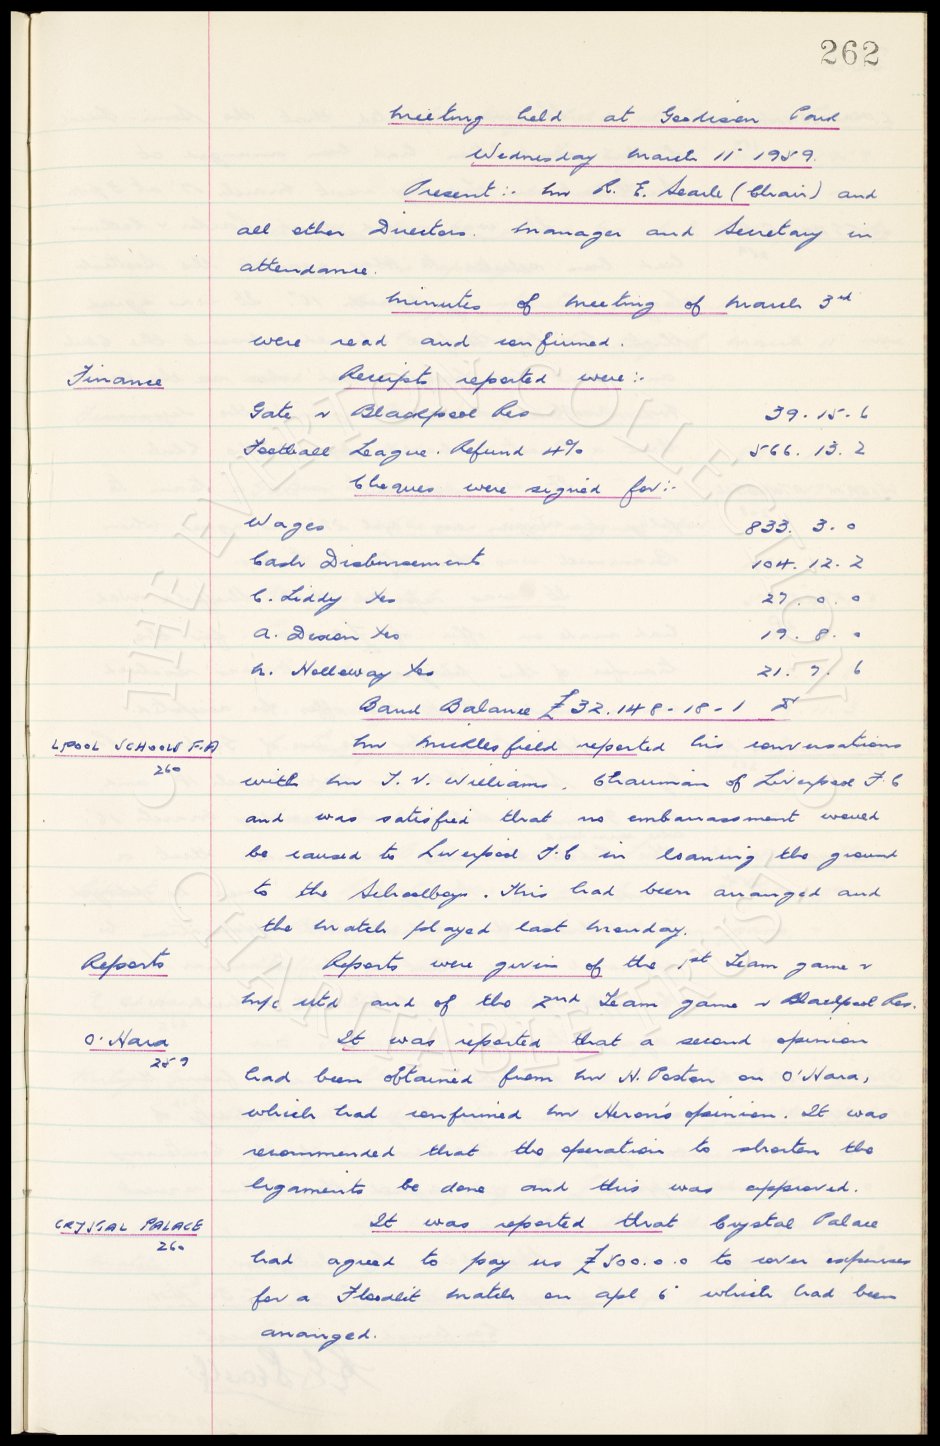 262
Meeting held at Goodison Park
Wednesday March 11th 1959.
Present :- Mr R. E. Searle (Chair) and
all other Directors. Manager and Secretary in
attendance.
Minutes of Meeting of March 3rd
were read and confirmed.
Finance
Receipts reported were :-
Gate v Blackpool Res 39 . 15 . 6
Football League . Refund 4% 566 . 13 . 2
Cheques were signed for :-
Wages 833 . 3 . 0
Cash Disbursements 104 . 12 . 2
C. Liddy 27 . 0 . 0
A. Dixon 19 . 8 . 0
M. Holloway 21 . 7 . 6
Bank Balance £32.148-18-1
LPOOL SCHOOLS F.A
260
Mr Micklesfield reported his conversations
with Mr T. V. Williams . Chairman of Liverpool F.C
and was satisfied that no embarrassment would
be caused to Liverpool F.C in loaning the ground
to the Schoolboys . This had been arranged and
the match played last Monday.
Reports
Reports were given of the 1st Team game v
M/c Utd and of the 2nd Team game v Blackpool Res.
O'Hara
259
It was reported that a second opinion
had been obtained from Mr N. Poston on O'Hara,
which had confirmed Mr Heron's opinion . It was
recommended that the operation to shorten the
ligaments be done and this was approved.
CRYSTAL PALACE
260
It was reported that Crystal Palace
had agreed to pay us £500.0.0 to cover expenses
for a Floodlit match on Apl 6th which had been
arranged.
THE EVERTON COLLECTION
CHARITABLE TRUST